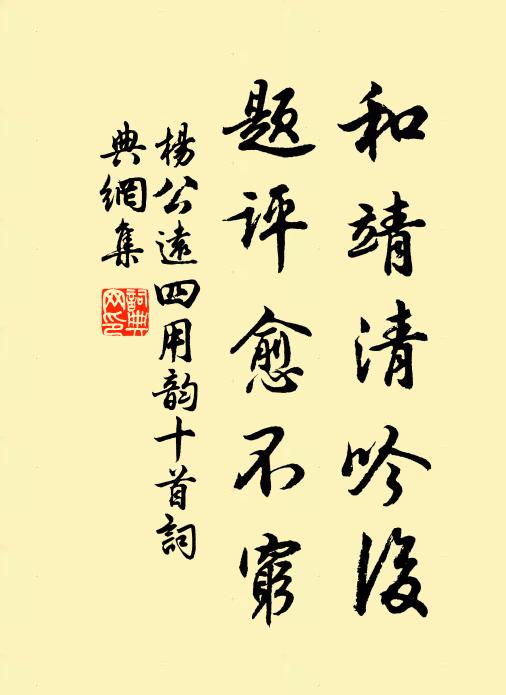 和靖清吟後
題評愈不窮
楊公遠四用韵十首詞
典網集
詞典
网印